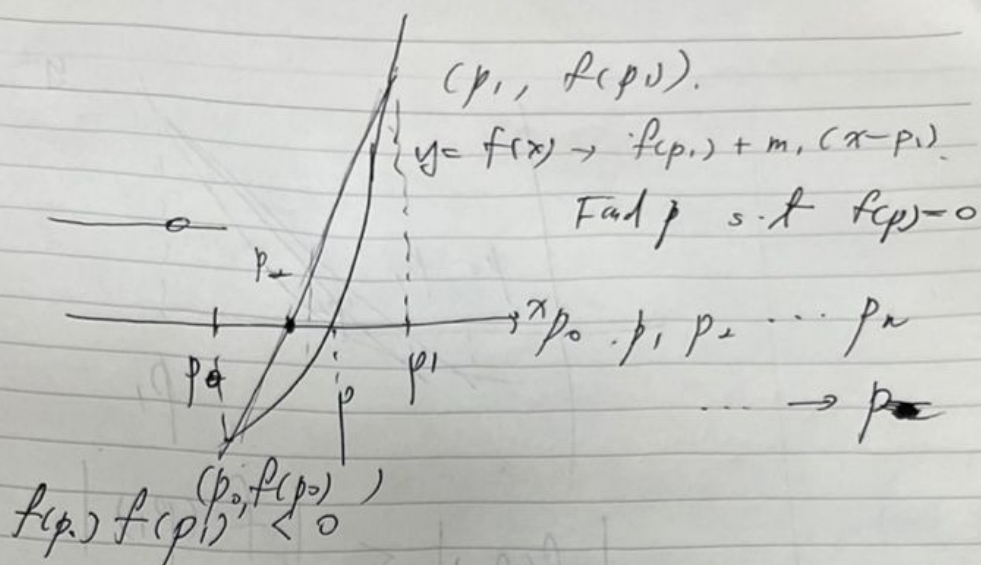 (p₁, f(p₁)).
y = f(x) → f(p₁) + m₁ (x-p₁).
Find p s.t f(p)=0
p₂
x
p₀ . p₁ p₂ .... pₙ
p₀
p
p1
... → p
(p₀, f(p₀) )
f(p₀) f(p₁) < 0